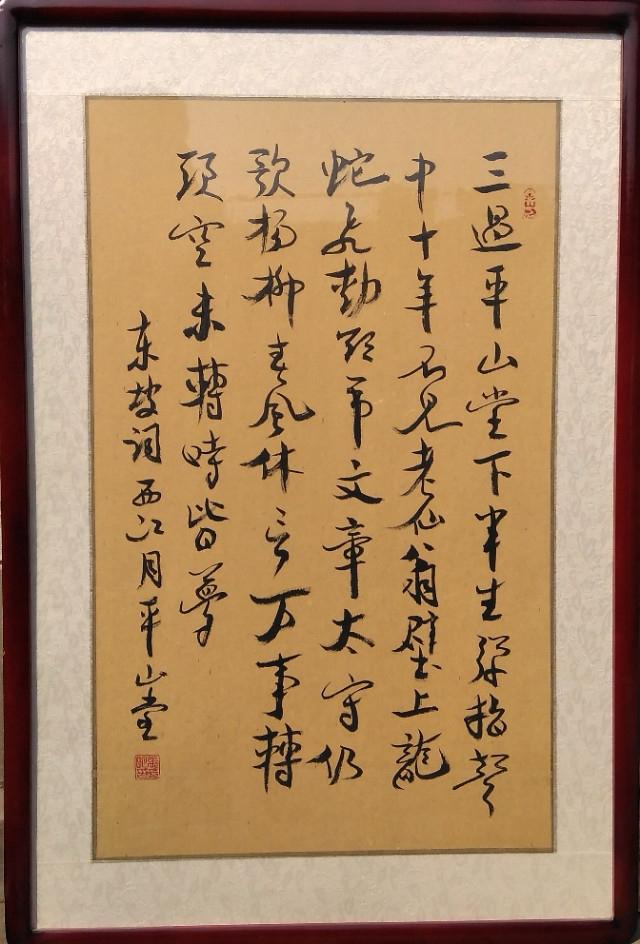 三過平山堂下半生弹指聲
中十年不見老仙翁壁上龍
蛇飛動欲弔文章太守仍
歌楊柳春風休言万事轉
頭空未轉時皆夢
东坡词西江月平山堂